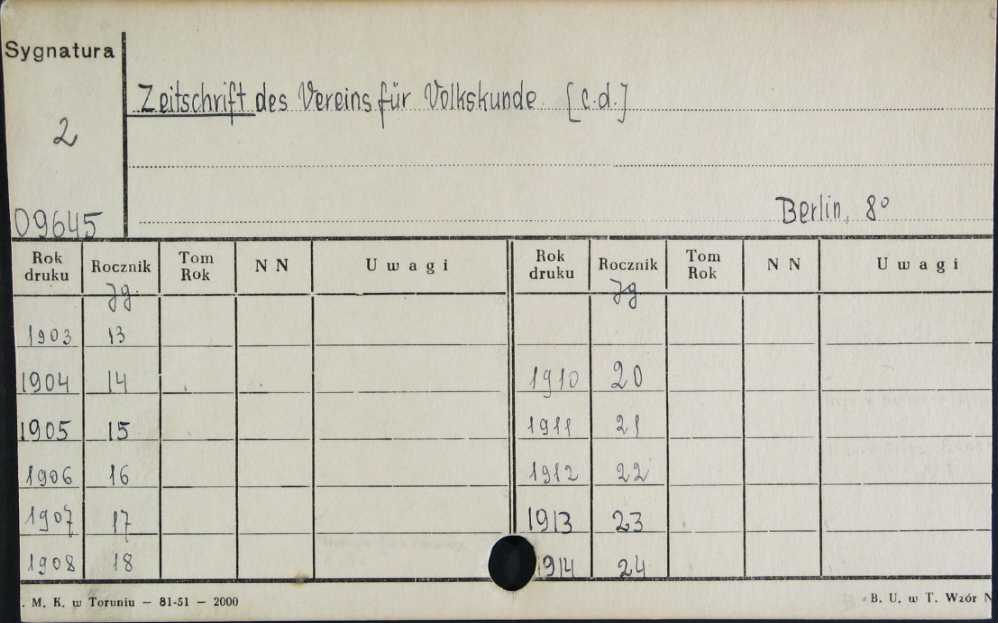 Sygnatura
Zeitschrift des Vereins für Volkskunde [c.d.]
2
Berlin, 8°
09645
Rok druku Rocznik Tom Rok N N Uwagi Rok druku Rocznik Tom Rok N N Uwagi
Jg. Jg
1903 13
1904 14 1910 20
1905 15 1911 21
1906 16 1912 22
1907 17 1913 23
1908 18 1914 24
. M. K. w Toruniu — 81-51 — 2000 B. U. w T. Wzór N